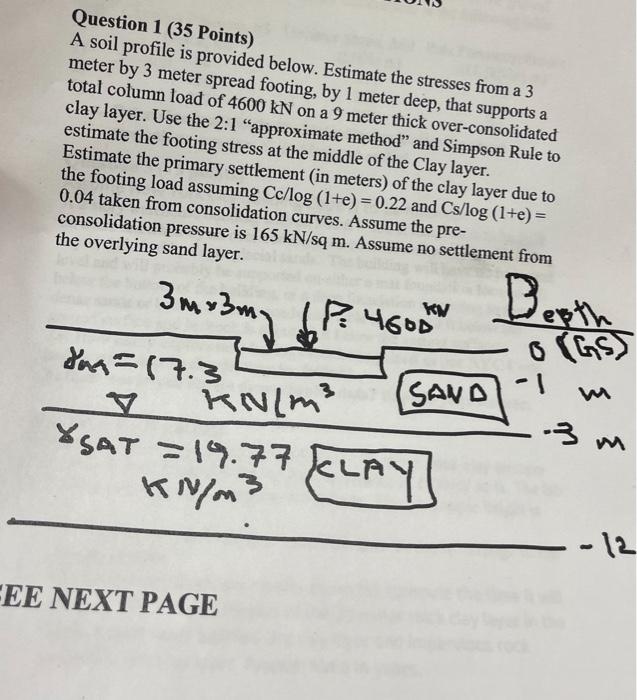 Question 1 (35 Points)
A soil profile is provided below. Estimate the stresses from a 3
meter by 3 meter spread footing, by 1 meter deep, that supports a
total column load of 4600 kN on a 9 meter thick over-consolidated
clay layer. Use the 2:1 “approximate method” and Simpson Rule to
estimate the footing stress at the middle of the Clay layer.
Estimate the primary settlement (in meters) of the clay layer due to
the footing load assuming Cc/log (1+e) = 0.22 and Cs/log (1+e) =
0.04 taken from consolidation curves. Assume the pre-
consolidation pressure is 165 kN/sq m. Assume no settlement from
the overlying sand layer.
3m x 3m P= 4600 KN Depth
0 (GS)
γm = 17.3
KN/m³ SAND -1 m
-3 m
γSAT = 19.77 CLAY
KN/m³
-12
EE NEXT PAGE